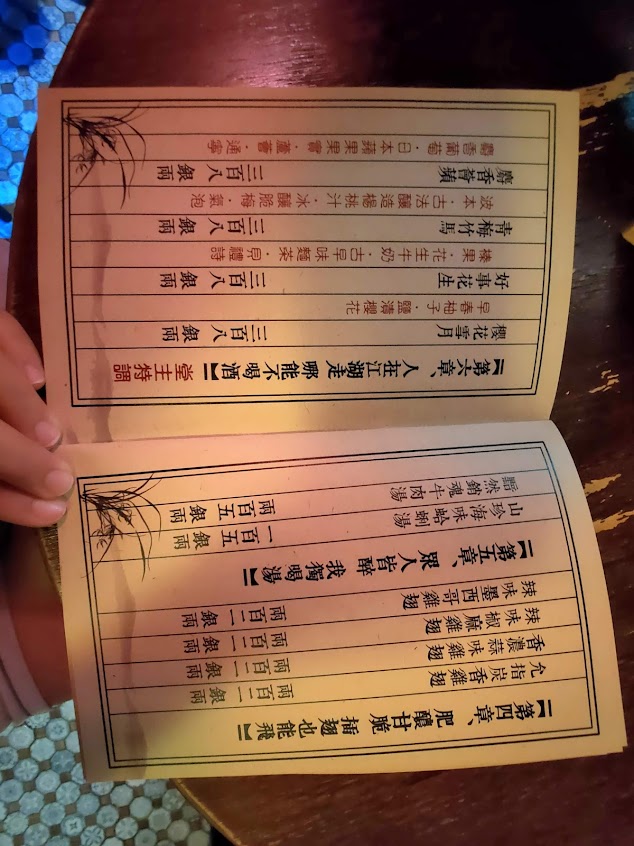 【第四章、肥釀甘脆 插翅也能飛】
允指炭香雞翅 兩百二 銀兩
香濃蒜味雞翅 兩百二 銀兩
辣味椒麻雞翅 兩百二 銀兩
辣味墨西哥雞翅 兩百二 銀兩
【第五章、眾人皆醉 我獨喝湯】
山珍海味蛤蜊湯 一百五 銀兩
黯然銷魂牛肉湯 兩百五 銀兩
【第六章、人在江湖走 哪能不喝酒】堂主特調
櫻花雪月 三百八 銀兩
早春柚子・鹽漬櫻花
好事花生 三百八 銀兩
榛果・花生牛奶・古早味麵茶・貝禮詩
青梅竹馬 三百八 銀兩
波本・古法釀造楊桃汁・冰釀脆梅・氣泡
麝香薈蘋 三百八 銀兩
麝香葡萄・日本蘋果果實・蘆薈・通寧